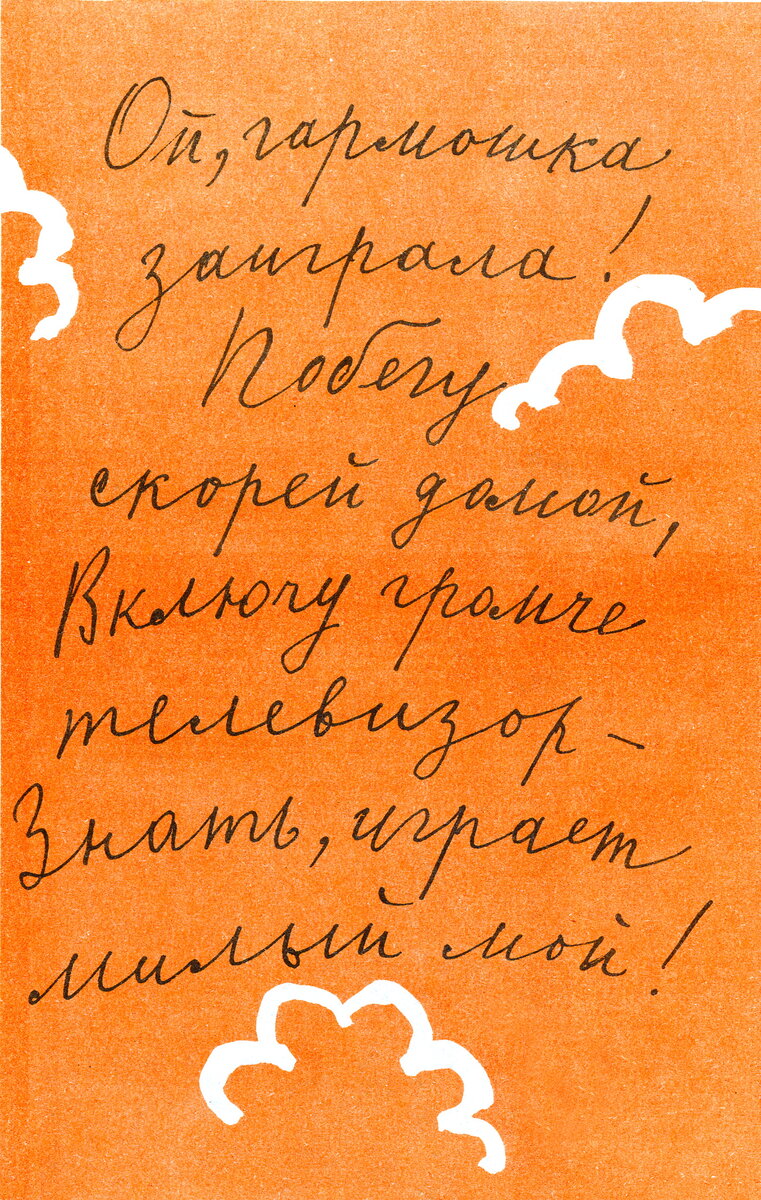 Ой, гармошка
заиграла!
Побегу
скорей домой,
Включу громче
телевизор –
Знать, играет
милый мой!